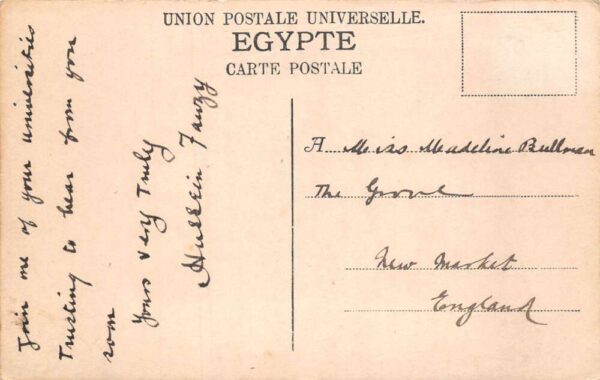 UNION POSTALE UNIVERSELLE.
EGYPTE
CARTE POSTALE
Join one of your universities
Trusting to hear from you
soon
Yours very Truly
Hussein Fawzy
A Miss Madeline Bullman
The Grove
New Market
England